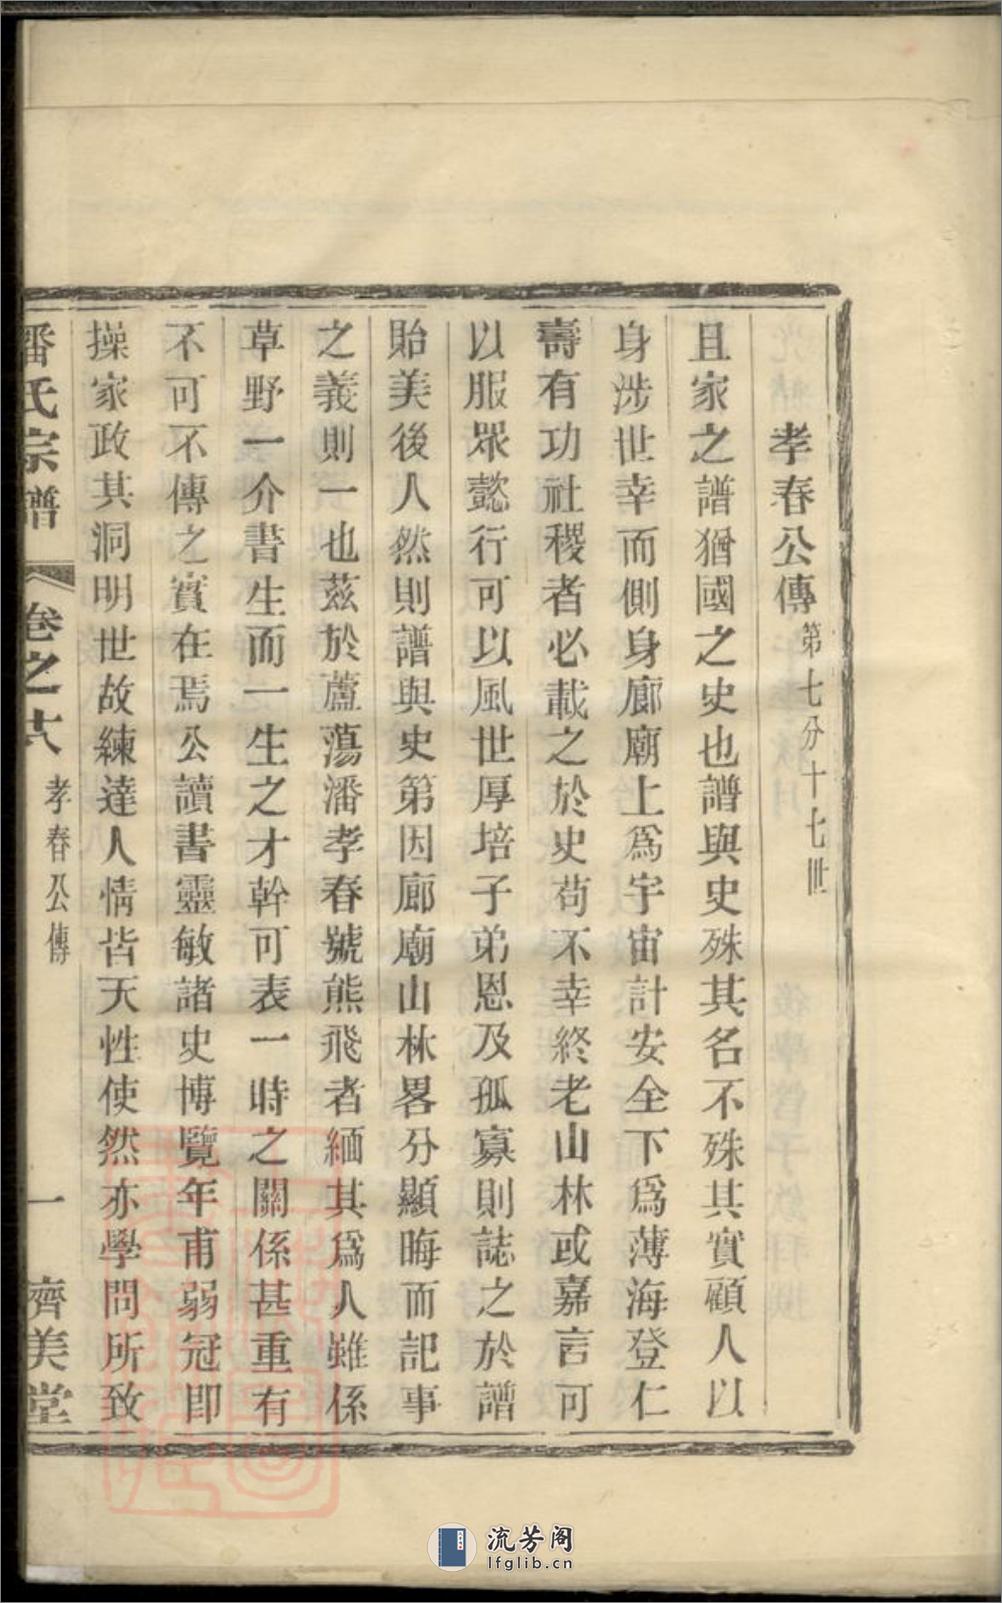 孝春公傳 第七分十七世
且家之譜猶國之史也譜與史殊其名不殊其實顧人以
身涉世幸而側身廊廟上爲宇宙計安全下爲薄海登仁
壽有功社稷者必載之於史苟不幸終老山林或嘉言可
以服眾懿行可以風世厚培子弟恩及孤寡則誌之於譜
貽美後人然則譜與史第因廊廟山林畧分顯晦而記事
之義則一也茲於蘆蕩潘孝春號熊飛者緬其爲人雖係
草野一介書生而一生之才幹可表一時之關係甚重有
不可不傳之實在焉公讀書靈敏諸史博覽年甫弱冠即
操家政其洞明世故練達人情皆天性使然亦學問所致
潘氏宗譜 卷之十八 孝春公傳 一 濟美堂
流芳阁
lfglib.cn